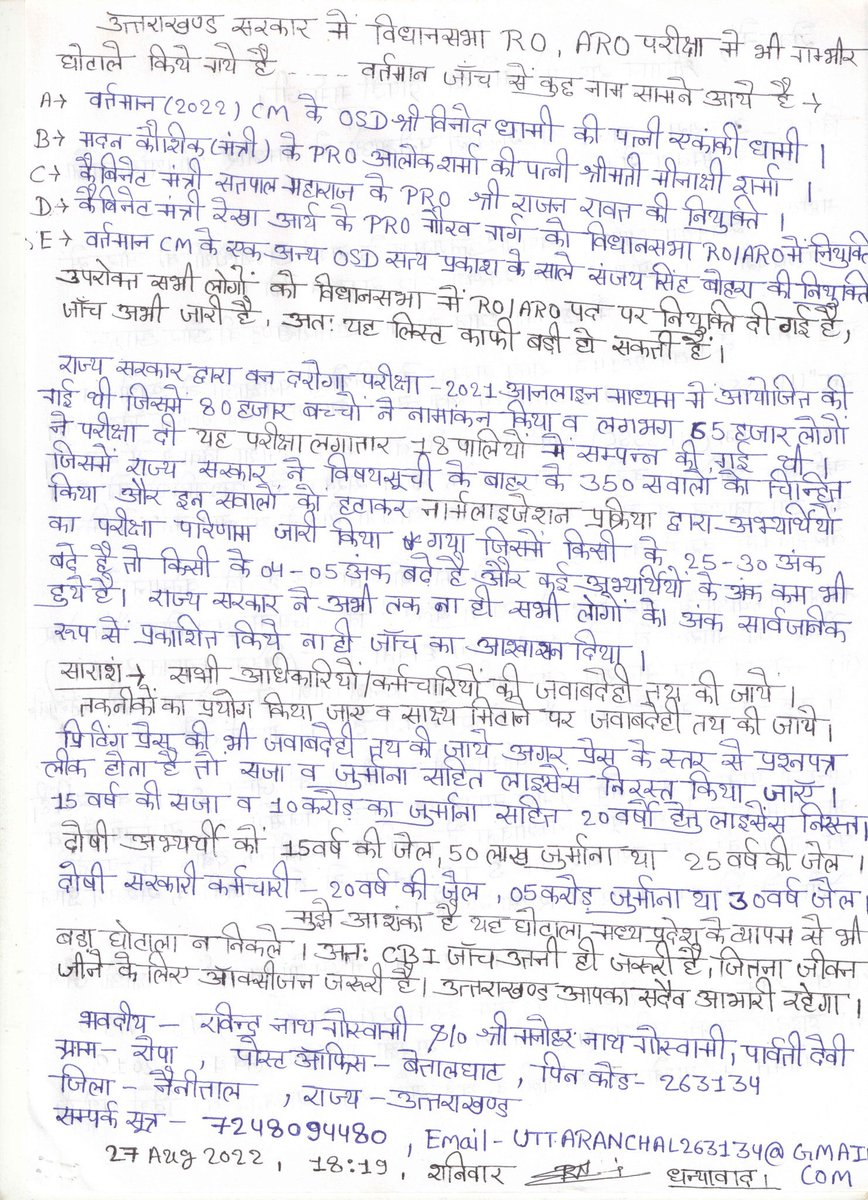 उत्तराखण्ड सरकार में विधानसभा RO, ARO परीक्षा में भी गम्भीर
घोटाले किये गये है ..... वर्तमान जाँच से कुछ नाम सामने आये है →
A→ वर्तमान (2022) CM के OSD श्री विनोद धामी की पत्नी एकांकी धामी।
B→ मदन कौशिक (मंत्री) के PRO आलोक शर्मा की पत्नी श्रीमती मीनाक्षी शर्मा।
C→ कैबिनेट मंत्री सतपाल महाराज के PRO श्री राजन रावत की नियुक्ति।
D→ कैबिनेट मंत्री रेखा आर्य के PRO गौरव गर्ग को विधानसभा RO/ARO में नियुक्ति
E→ वर्तमान CM के एक अन्य OSD सत्य प्रकाश के साले संजय सिंह बोहरा की नियुक्ति
उपरोक्त सभी लोगों को विधानसभा में RO/ARO पद पर नियुक्ति दी गई है,
जाँच अभी जारी है, अतः यह लिस्ट काफी बडी हो सकती है।
राज्य सरकार द्वारा वन दरोगा परीक्षा - 2021 आनलाइन माध्यम से आयोजित की
गई थी जिसमें 80 हजार बच्चों ने नामांकन किया व लगभग 65 हजार लोगों
ने परीक्षा दी यह परीक्षा लगातार 18 पालियों में सम्पन्न की गई थी।
जिसमें राज्य सरकार ने विषयसूची के बाहर के 350 सवालों को चिन्हित
किया और इन सवालों को हटाकर नार्मलाइजेशन प्रक्रिया द्वारा अभ्यर्थियों
का परीक्षा परिणाम जारी किया गया जिसमें किसी के 25-30 अंक
बढे है तो किसी के 04-05 अंक बढे है और कई अभ्यर्थियों के अंक कम भी
हुये है। राज्य सरकार ने अभी तक ना ही सभी लोगों का अंक सार्वजनिक
रूप से प्रकाशित किये ना ही जाँच का आश्वासन दिया।
साराशं → सभी अधिकारियों/कर्मचारियों की जवाबदेही तय की जाये।
तकनीकों का प्रयोग किया जाए व साक्ष्य मिटाने पर जवाबदेही तय की जाये।
प्रिटिंग प्रेस की भी जवाबदेही तय की जाये अगर प्रेस के स्तर से प्रश्नपत्र
लीक होता है तो सजा व जुर्माना सहित लाइसेंस निरस्त किया जाए।
15 वर्ष की सजा व 10 करोड का जुर्माना सहित 20 वर्षो हेतु लाइसेंस निरस्त।
दोषी अभ्यर्थी को 15 वर्ष की जेल, 50 लाख जुर्माना या 25 वर्ष की जेल।
दोषी सरकारी कर्मचारी - 20 वर्ष की जेल, 05 करोड़ जुर्माना या 30 वर्ष जेल।
मुझे आशंका है यह घोटाला मध्य प्रदेश के व्यापम से भी
बड़ा घोटाला न निकले। अतः CBI जाँच उतनी ही जरूरी है, जितना जीवन
जीने के लिए ऑक्सीजन जरूरी है। उत्तराखण्ड आपका सदैव आभारी रहेगा।
भवदीय - रविन्द्र नाथ गोस्वामी S/o श्री मनोहर नाथ गोस्वामी, पार्वती देवी
ग्राम - रोपा, पोस्ट ऑफिस - बेतालघाट, पिन कोड - 263134
जिला - नैनीताल, राज्य - उत्तराखण्ड
सम्पर्क सूत्र - 7248094480, Email - UTTARANCHAL263134@GMAIL
COM
27 Aug 2022, 18:19, शनिवार धन्यवाद।